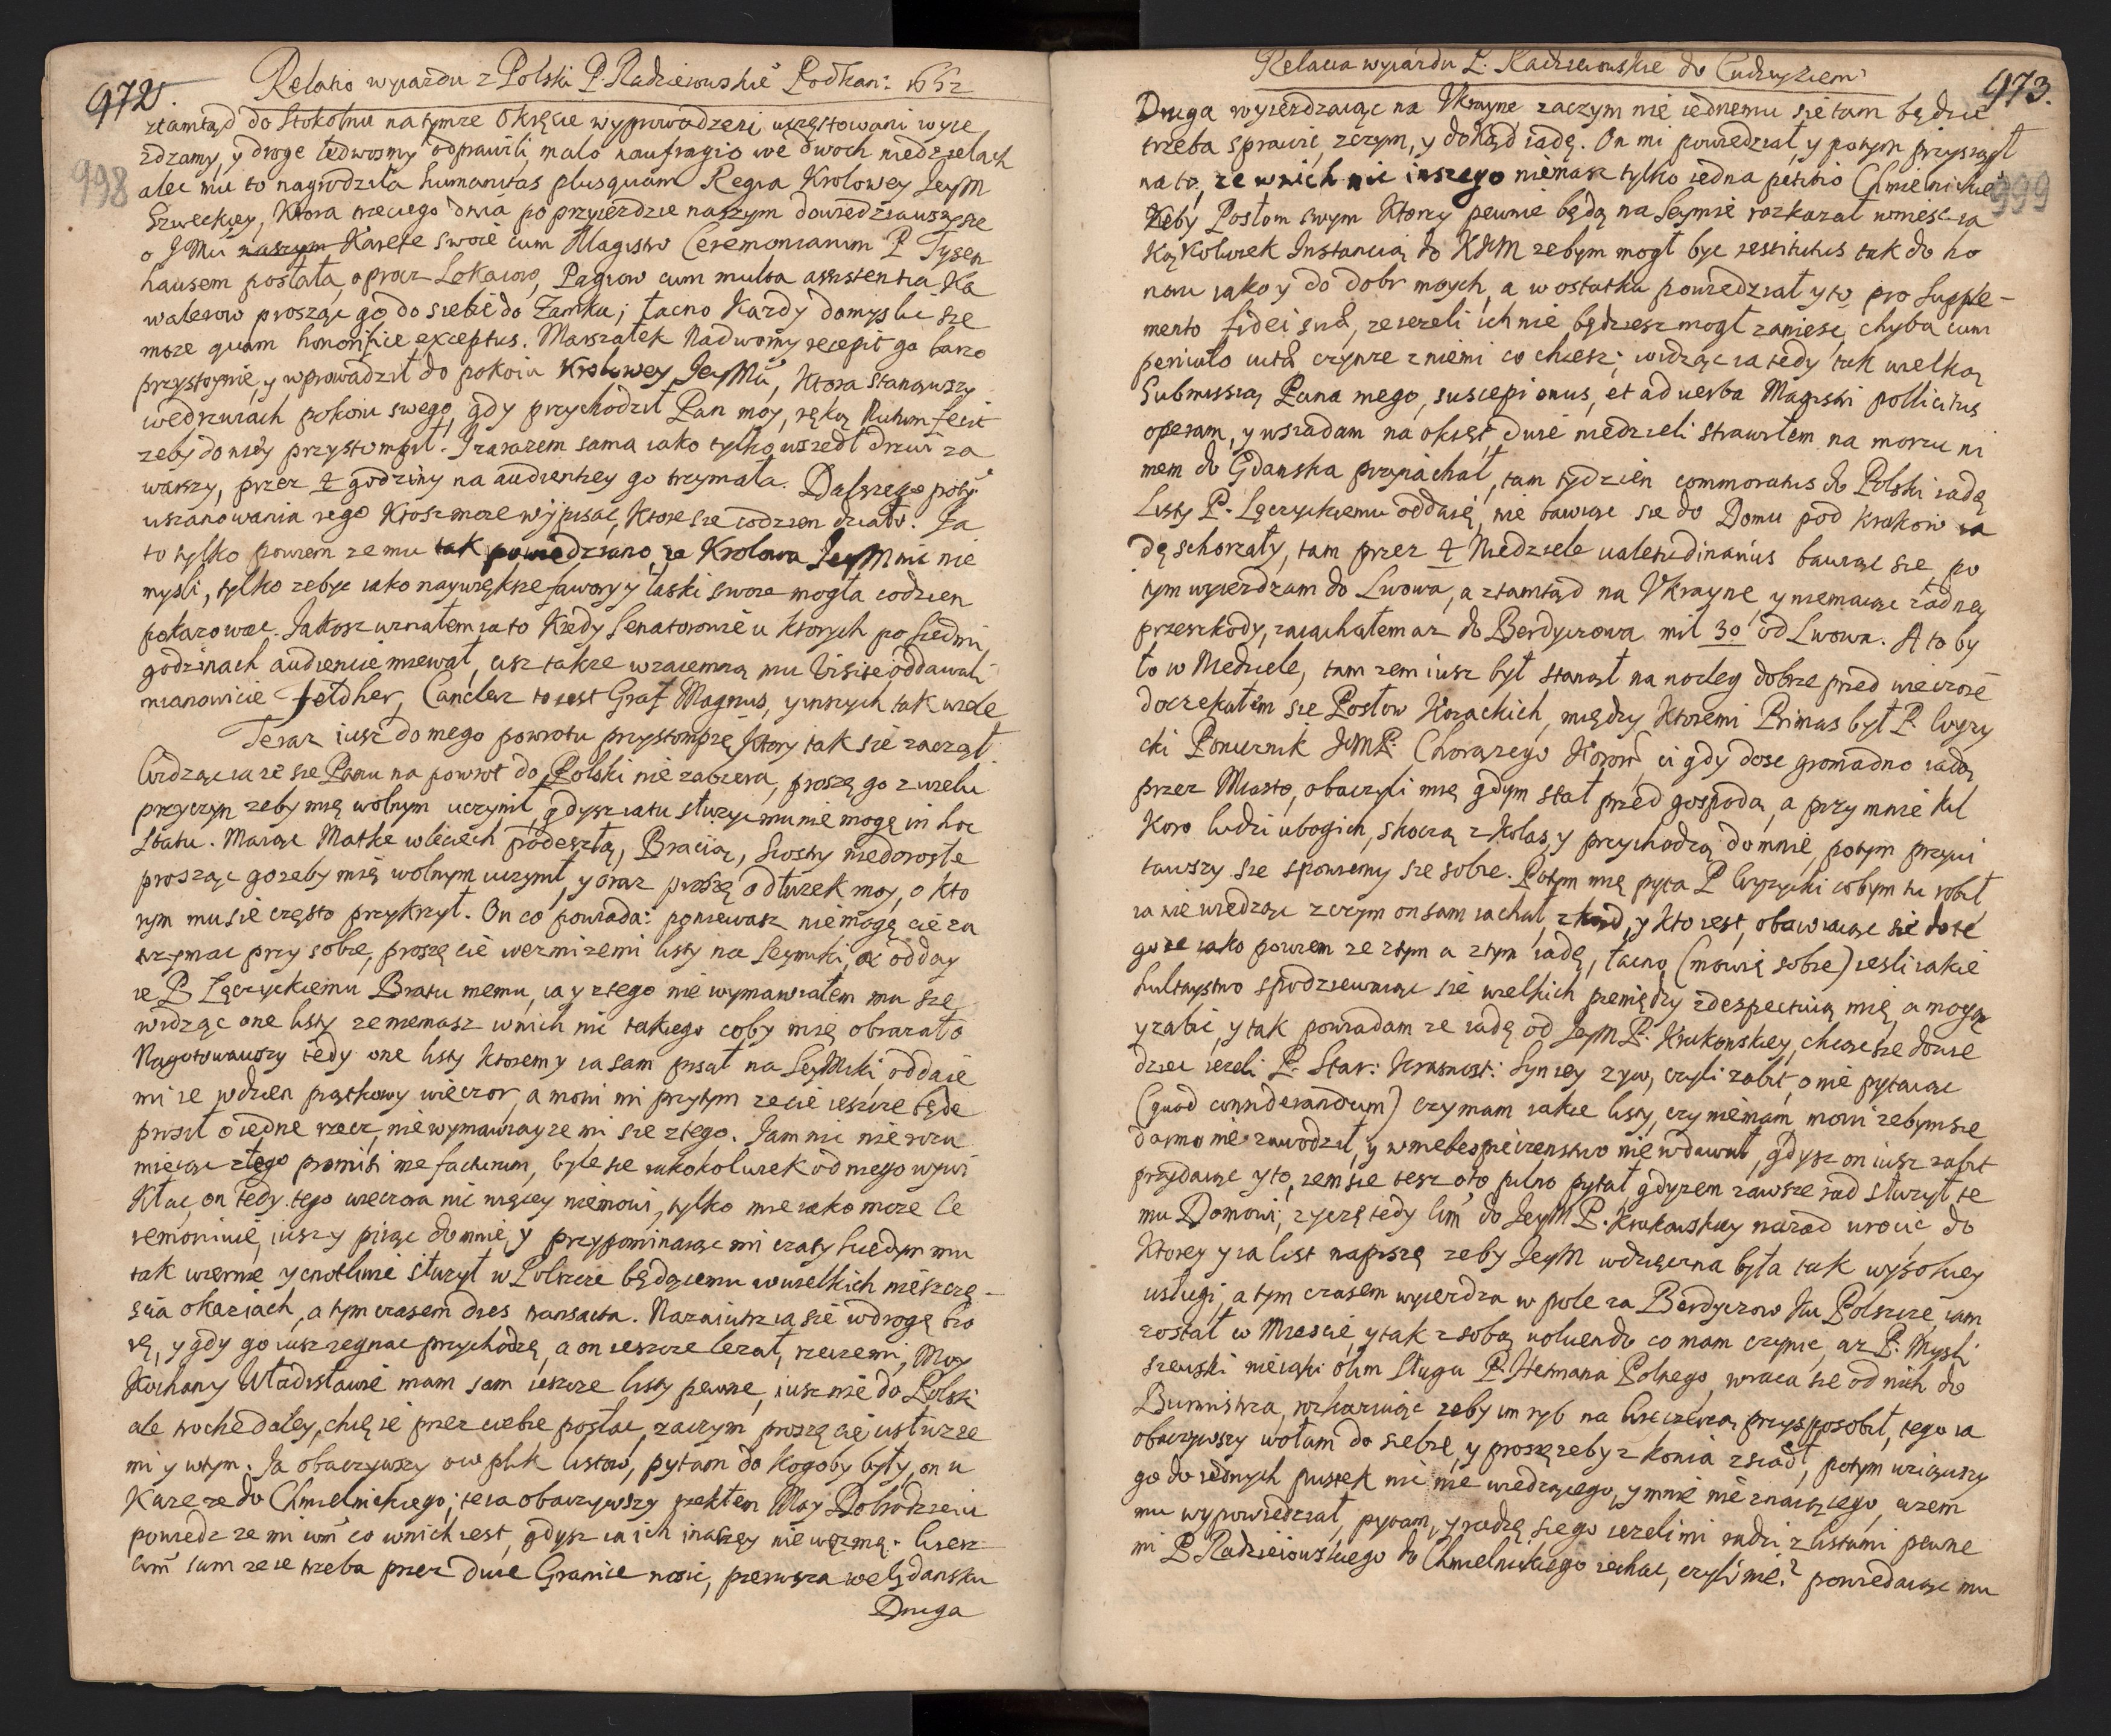 972.
Relatio wyiazdu z Polski P. Radzieiowskie° Podkan: 1652
998
ztamtąd do Stokolmu na tymze Okręcie wyprowadzeni, uczęstowani wyie
zdzamy, y droge ledwosmy odprawili, malo naufragio we dwoch niedzielach
alec mu to nagrodziła humanitas plusquam Regia Krolowey JeyM
Szweckiey, Ktora trzeciego dnia po przyiezdzie naszym dowiedziawszy sie
o JMu naszym Karete swoię cum Magistro Ceremoniarum P Tysen
hausem posłała, oprocz Lokaiow, Pagiow cum multa assistentia Ka
walerow prosząc go do siebie do Zamku; łacno Kazdy domyslic się
moze quam honorifice exceptus. Marszałek Nadworny recepit go barzo
przystoynie, y wprowadził do pokoiu Krolowey JeyMci, Ktora stanąwszy
wedrzwiach pokoiu swego, gdy przychodził Pan moy, ręką nutum fecit
zeby do niey przystompił. I zarazem sama iako tylko wszedł drzwi za
warszy, przez 4 godziny na audientiey go trzymała. Dalszego poty
uszanowania iego Ktosz moze wypisać, Ktore sie codzien działo. Ja
to tylko powiem ze mu tak powiedziano, ze Krolowa JeyM nic nie
mysli, tylko zebyc iako naywiększe fawory y łaski swoie mogła codzien
pokazowac. Jakosz uznałem ia to Kiedy Senatorowie u ktorych po siedmi
godzinach audiencie miewał, cisz takze wzaiemną mu Visite oddawali
mianowicie Feldher, Canclerz to iest Graf Magnus, y innych tak wiele
Teraz iusz do mego powrotu przystompię Ktory tak się zaczął
Widząc ia ze sie Panu na powrot do Polski nie zabiera, proszę go z wielu
przyczyn zeby mię wolnym uczynił, gdysz ia tu służyc mu nie mogę in hoc
statu. Maiąc Matke w leciech podeszłą, Bracią, Siostry niedorosłe
prosząc go zeby mię wolnym uczynił, y oraz proszę o dłużek moy, o kto
rym mu sie często przykrzył. On co powiada: poniewasz nie mogę cie za
trzymac przy sobie, proszę cie wezmi ze mi listy na Seymiki, a odday
ie P Łęczyckiemu Bratu memu, ia y z tego nie wymawiałem mu sie
widząc one listy ze niemasz w nich nic takiego coby mię obrazało
Nagotowawszy tedy one listy Ktoremy ia sam pisał na SeyMiki, oddaie
mi ie w dzien piątkowy wieczor, a mowi mi przytym ze cie ieszcze będę
prosił o iedne rzecz, nie wymawiayze mi sie z tego. Jam nic nie rozu
mieiąc złego promisi me facturum, byle sie iakokolwiek od niego wywi
Kłac, on tedy tego wieczora nic więcey niemowi, tylko mie iako moze Ce
remoniuie, iuszy piiąc do mnie, y przypominaiąc mi czasy kiedym mu
tak wiernie y cnotliwie służył w Polszcze będącemu w wielkich niészczę-
scia okaziach, a tym czasem dies transacta. Nazaiutrz ia sie w drogę bio
rę, y gdy go iusz zegnac przychodzę, a on ieszcze lezał, rzecze mi, Moy
Kochany Władisławie mam sam ieszcze listy pewne, iusz nie do Polski
ale troche daley, chcę ie przez ciebie posłac, zaczym proszę cię usłuzze
mi y w tym. Ja obaczywszy ow plik listow, pytam do kogoby były, on u
Kaze ze do Chmielnickiego; te ia obaczywszy rzekłem Moy Dobrodzieiu
powiedz ze mi Wm̃ co w nich iest, gdysz ia ich inaszey nie wezmę. Wiesz
Wm̃ sam ze ie trzeba przez dwie Granice niesc, pierwsza we Gdansku
Druga
Relacia wyiazdu P. Radzieiowskie° do Cudzychziem
973.
999
Druga wyiezdzaiąc na Ukrayne, zaczym nie iednemu sie tam będzie
trzeba sprawic, zczym, y dokąd iadę. On mi powiedział, y potym przysiągł
na to, ze w nich nic inszego niemasz tylko iedna petitio Chmielnickie°
Zeby Posłom swym Ktorzy pewnie będą na Seymie rozkazał wniesc ia
Ką Kolwiek Instancią do KJM zebym mogł byc restitutus tak do ho
noru iako y do dobr moych, a w ostatku powiedział y to pro supple-
mento fidei suæ, ze iezeli ich nie będziesz mogł zaniesc, chyba cum
periculo vitæ czynze z niemi co chcesz; widząc ia tedy tak wielką
Submissią Pana mego, suscepi onus, et ad verba Magistri pollicitus
operam, y wsiadam na okręt, dwie niedzieli strawiłem na morzu ni
mem do Gdanska przyiachał, tam tydzien commoratus do Polski iadę
Listy P. Łęczyckiemu oddaię, nie bawiąc sie do Domu pod Krakow ia
dę schorzały, tam przez 4 Niedziele valetudinarius bawiąc sie, po
tym wyiezdzam do Lwowa, a ztamtąd na Vkrayne, y niemaiąc zadney
przeszkody, zaiachałem az do Berdyczowa mil 30 od Lwowa. A to by
ło w Niedziele, tam zem iusz był stanął na nocleg dobrze przed wieczorē
doczekałem sie Posłow Kozackich, między Ktoremi Primas był P. Wyzy
cki Porucznik JeMP. Chorązego Koron̄, ci gdy dosc gromadno iadą
przez Miasto, obaczyli mię gdym stał przed gospodą, a przy mnie Kil
Koro ludzi ubogich, skoczą z Kolas, y przychodzą do mnie, potym przywi
tawszy sie spowiemy sie sobie. Potym mię pyta P Wyzycki cobym tu robił
ia nie wiedząc zczym on sam iachał, zkąd, y kto iest, obawiaiąc sie do te
go ze iako powiem ze ztym a ztym iadę, łacno (mowię sobie) iesli iakie
hultaystwo spodziewaiąc sie wielkich pieniędzy zdespectuią mię, a mogą
y zabic, y tak powiadam ze iadę od JeyM P. Krakowskiey, chcąc sie dowie
dziec iezeli P. Star: Krasnost: Syn iey zyw, czyli zabit, o nie pytaiąc
(quod considerandum) czy mam iakie listy, czy niemam, mowi zebym sie
darmo nie zawodził, y w niebespieczenstwo nie wdawał, gdysz on iusz zabit
przydaiąc y to, zem sie tesz o to pilno pytał, gdyzem zawsze rad słuzył te
mu Domowi; zyczę tedy Wm̃ do JeyM P. Krakowskiey nazad wrocic, do
Ktorey y ia list napiszę zeby JeyM wdzięczna była tak wysokiey
usługi, a tym czasem wyiezdza w pole za Berdyczow Ku Polszcze, iam
został w Miescie, y tak z sobą volvendo co mam czynic, az P. Mysli
szewski nieiaki olim Sługa P. Hetmana Polnego, wraca sie od nich do
Burmistrza, rozkazuiąc zeby im ryb na wieczerzą przysposobił, tego ia
obaczywszy wołam do siebie, y proszę zeby z konia zsiadł, potym wziąwszy
go do iednych pustek nic nie wiedzącego, y mnie nie znaiącego, czem
mu wypowiedział, pytam, y radzę sie go iezeli mi radzi z listami pewne
mi P Radzieiowskiego do Chmelnickiego iechac, czyli nie? powiedaiąc mu